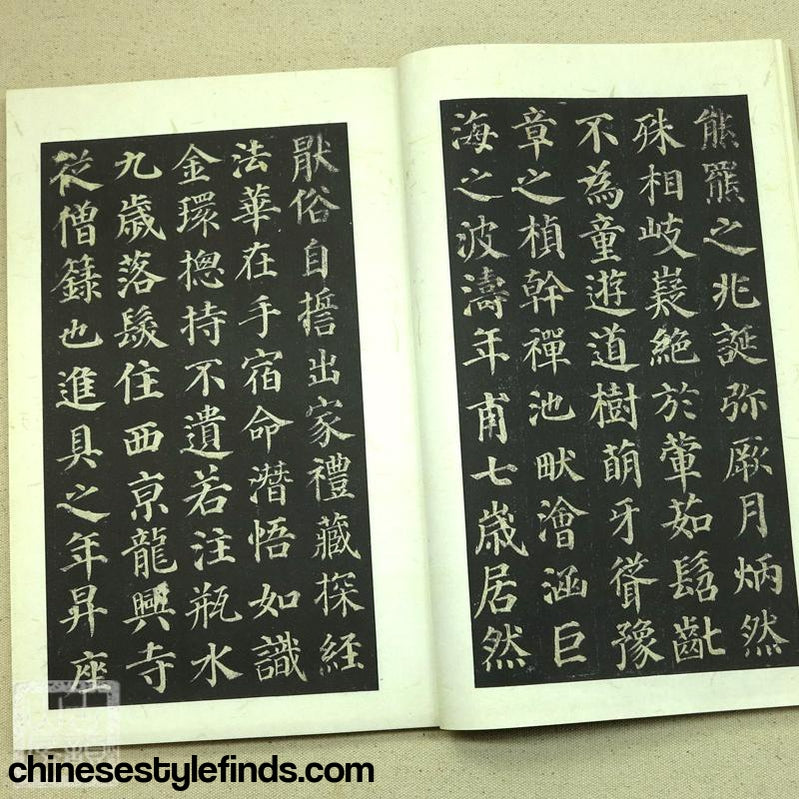 熊羆之兆誕弥厥月炳然
殊相岐嶷絶於葷茹髫齔
不為童遊道樹萌牙聳豫
章之楨幹禪池畎澮涵巨
海之波濤年甫七歳居然
猒俗自擔出家禮藏探経
法華在手宿命潛悟如識
金環捴持不遺若注瓶水
九歳落髮住西亰龍興寺
従僧籙也進具之年昇座
chinesestylefinds.com